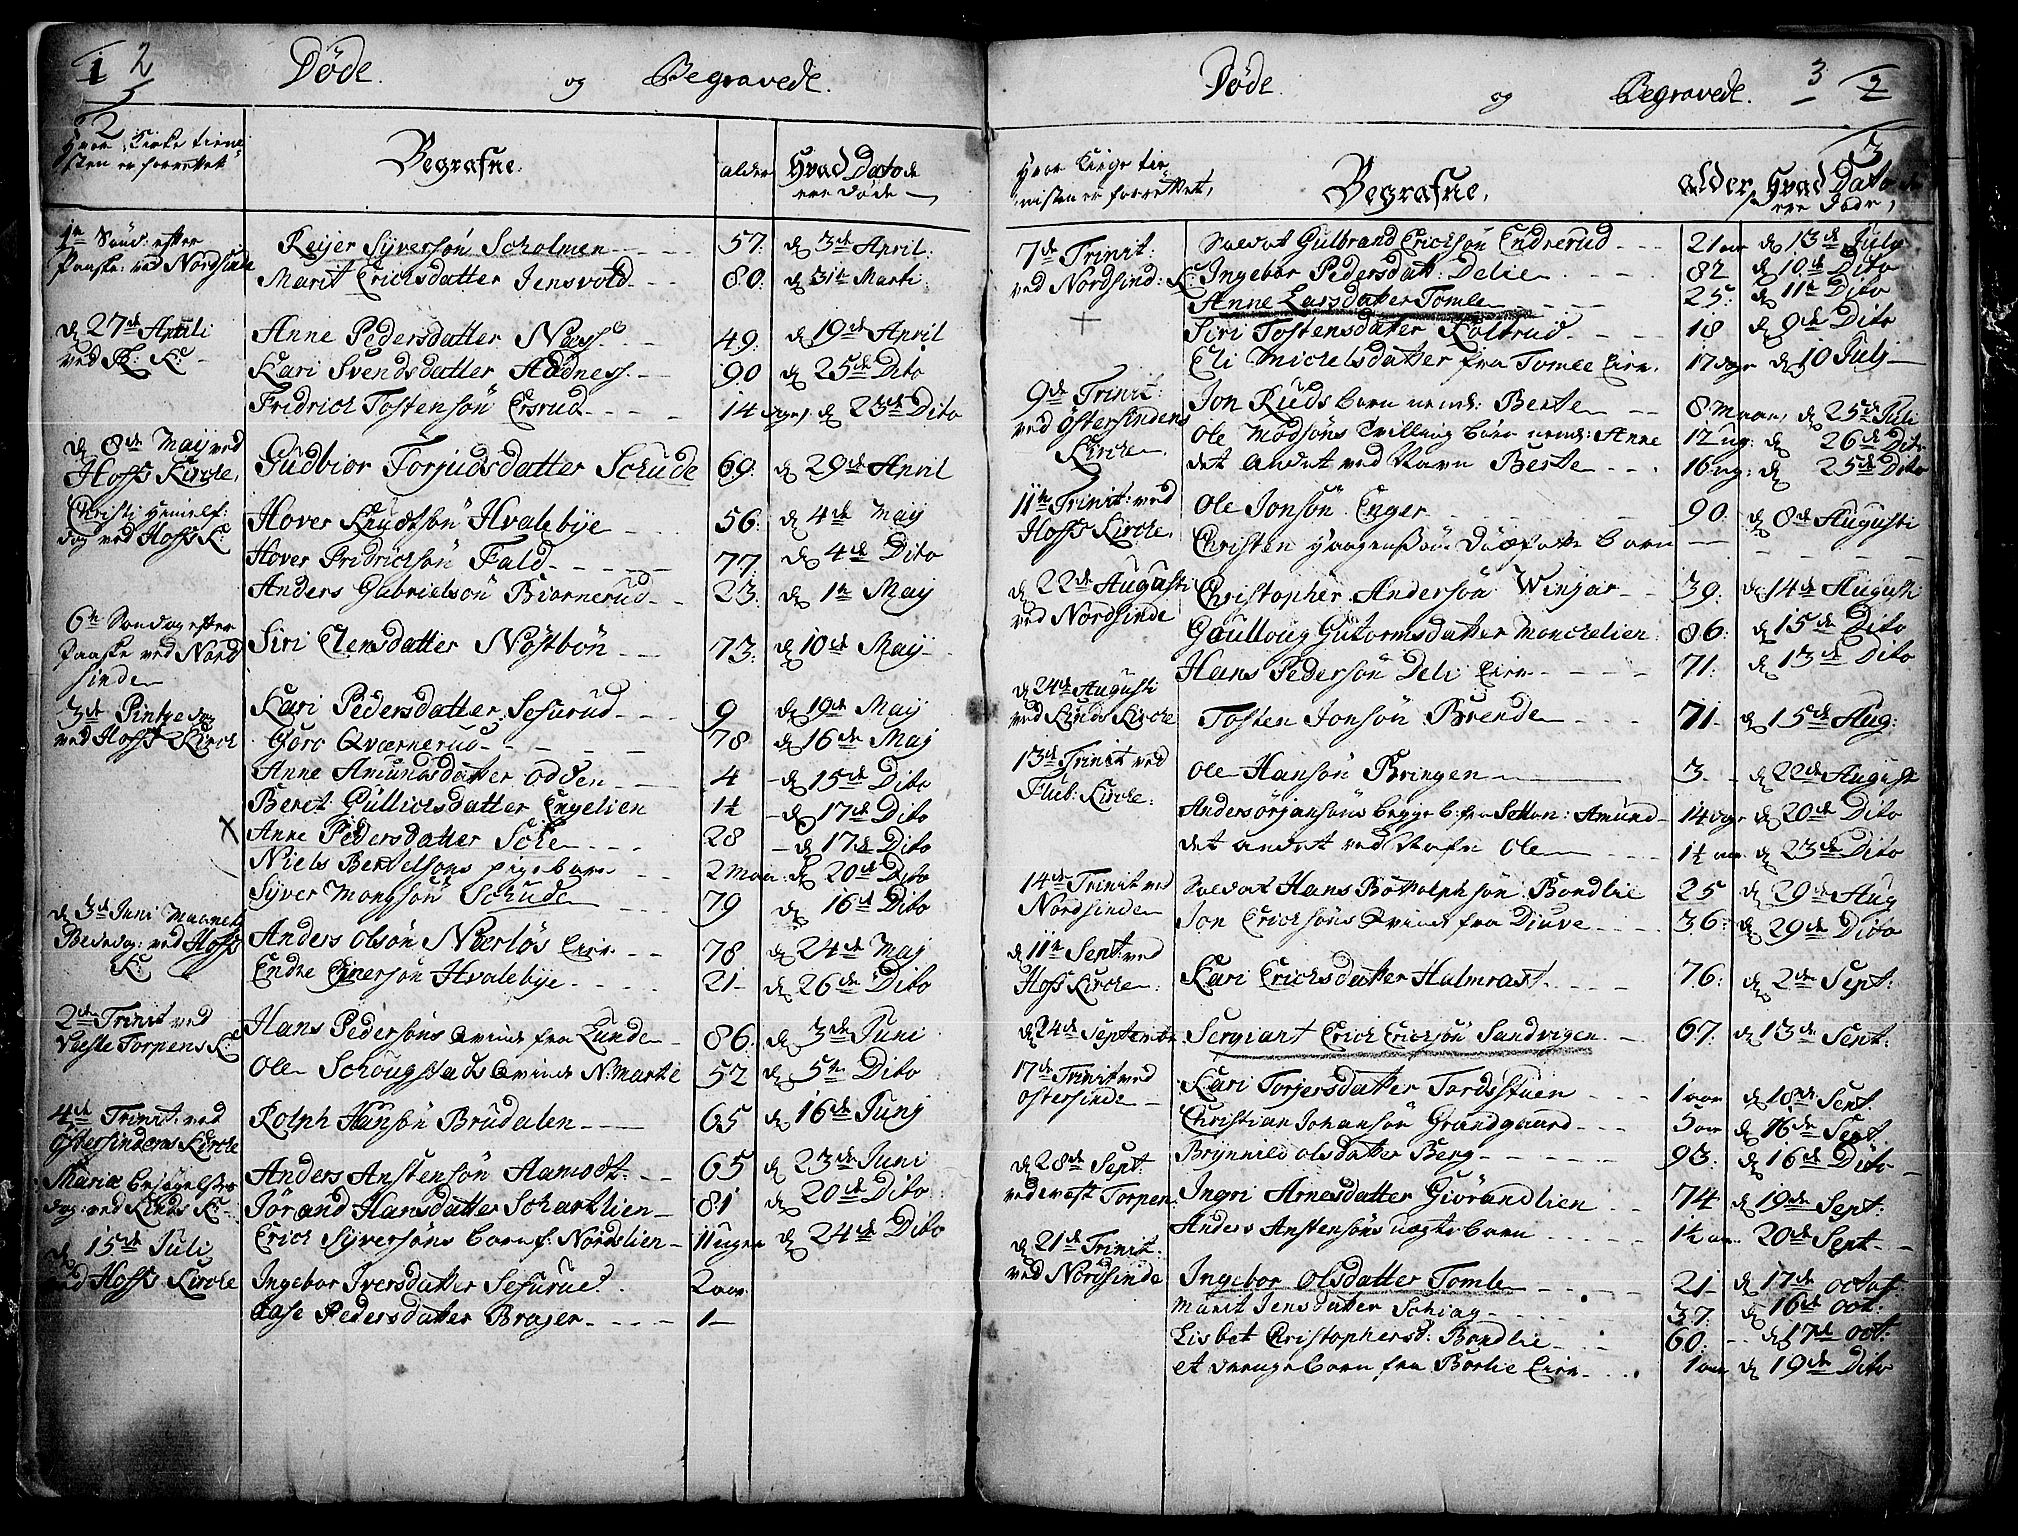 1 2
Døde og Begravede.
2
Hvor Kirke tiene
sten er forrettet
Begrafne.
alder
Hvad Dato de
ere døde
1te Sønd: efter
Paaske: ved Nordsinde
Reijer Syversøn Scholmen 57. d 3de April.
Marit Erichsdatter Jensvold 80. d 31te Marti
d 27de Aprili
ved K:
Anne Pedersdatter Næss 49. d 19de April
Kari Svendsdatter Aadness 90 d 25de Dito
Fridrich Tostensøn Ersrud 14 dage, d 23de Dito
d 8de Maij ved
Hofs Kirche,
Gudbior Torjudsdatter Schude 69. d 29de April
Christi Himelf:
dag ved Hofs K:
Hover Knudtsøn Hvalebye 56. d 4de Maij
Hover Fridrichsøn Fald 77. d 4de Dito
Anders Gabrielsøn Biørnerud 23. d 1te Maij
6te Søndag efter
Paaske ved Nord
sinden
Siri Clemsdatter Nøstbøn 73. d 10de Maij
3de Pintzedag
ved Hofs Kirch
Kari Pedersdatter Sesurud 9 d 19de Maij
Goro Qværnerud 78 d 16de Maj
Anne Amundsdatter Odden 4 d 15de Dito
Berit Gullichsdatter Engelien 1½ d 17de Dito
X Anne Pedersdatter Sole 28 d 17de Dito
Niels Bertelsøns pigebarn 2 Maan: d 20de Dito
Syver Mongsøn Schude 79 d 16de Dito
d 3de Juni Maanetz
Bededag: ved Hofs
K:
Anders Olsøn Nærløs Eier 78 d 24de Maj
Endre Einersøn Hvalebye 21 d 26de Dito
2de Trinit ved
Næste Torpens K:
Hans Pedersøns Qvinde fra Lunde 86. d 3de Juni
Ole Schougstads Qvinde N: Marte 52 d 5te Dito
4de Trinit: ved
Østersindens Kirche
Rolph Hansøn Brudalen 65 d 16de Junj
Mariæ Besøgelses
dag: ved Lunds K:
Anders Anstensøn Aamodt 65 d 23de Juni
Jørand Hansdatter Schartlien 81 d 20de Dito
Erich Syversøns barn f: Nordslien 11 uger d 24de Dito
d 15de Juli
ved Hofs Kirche
Ingebor Iversdatter Sesurud 2 aar
Aase Pedersdatter Brager 1
Døde og Begravede. 3 2
3
Hvor Kirge tie
nisten er forrettet,
Begrafne,
alder,
Hvad Dato de
ere døde,
7de Trinit:
ved Nordsind: K:
Soldat Gulbrand Erichsøn Endrerud 21 aar d 13de July
Ingebor Pedersdat: Delie 82 d 10de Dito
Anne Larsdatter Tomle 25: d 11te Dito
+ Siri Tostensdatter Koltrud 18 d 9de Dito
Eli Michelsdatter fra Tomle Eier, 17 dage d 10 Julj
9de Trinit:
ved Østersindens
Kirche.
Jon Ruds barn nemd: Berte 8 Maan, d 25de Juli
Ole Modsøns Tvilling børn nemd: Anne 12 ug: d 26de Dito
det andet ved Navn Berte 16 ug: d 25de Dito
11te Trinit: ved
Hofs Kirche,
Ole Jonsøn Enger 90. d 8de Augusti
Christen Haagensøns barn
d 22de Augusti
ved Nordsinde
Christopher Andersøn Winjar 39. d 14de Augusti
Goulloug Gutormsdatter Monchelien: 86. d 15de Dito
Hans Pedersøn Deli Eier 71. d 13de Dito
d 24de Augusti
ved Lunds Kirche
Tosten Jonsøn Brende 71 d 15de Aug:
13de Trinit ved
Flub: Kirche.
Ole Hansøn Bringen 3. d 22de Augusti
Anders Ørjansøns begge b: fra Setton: Amund 14 dage d 20de Dito
det andet ved Nafn Ole 1½ aar d 23de Dito
14de Trinit ved
Nordsinden
Soldat Hans Bottolphsøn Bondlie 25 d 29de Aug
Jon Erichsøns Qvinde fra Diuve 36. d 29de Dito
d 11te Sept: ved
Hofs Kirche.
Kari Erichsdatter Halmrast 76. d 2de Sept:
d 24de September
Sergiant Erich Erichsøn Sandvigen 67. d 13de Sept:
17de Trinit ved
Østersinden
Kari Torjersdatter Tordsstuen 1 aar d 18de Sept.
Christian Johansøn Grøndgaard 5 aar d 16de Sept
Brynnild Olsdatter Berg 93. d 16de Dito
d 28de Sept:
ved vest Torpen
Ingri Arnesdatter Giørandlien 74 d 19de Sept:
Anders Anstensøns uægte barn 1½ aar 20de Sept
d 21de Trinit:
ved Nordsinde
Ingebor Olsdatter Tomle 21 d 17de octob:
Marit Jensdatter Schiag 37. d 16de oct:
Lisbet Christophersd: Bondlie 60. d 17de oct:
et drenge barn fra Børlie Eier 1 aar d 19de Dito